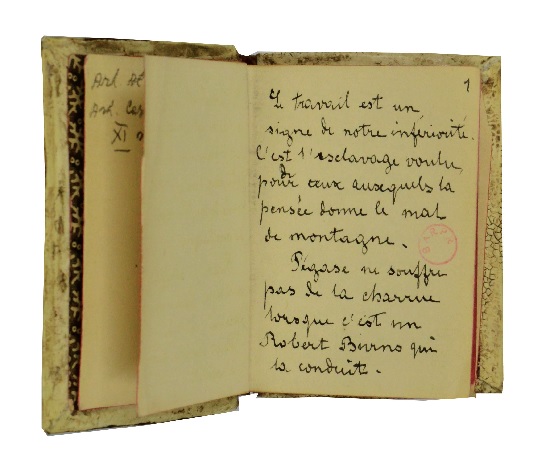 XI
1
Le travail est un
signe de notre infériorité.
C'est l'esclavage voulu
de
pour ceux auxquels la
pensée donne le mal
de montagne.
Pégase ne souffre
pas de la charrue
lorsque c'est un
Robert Burns qui
la conduit.